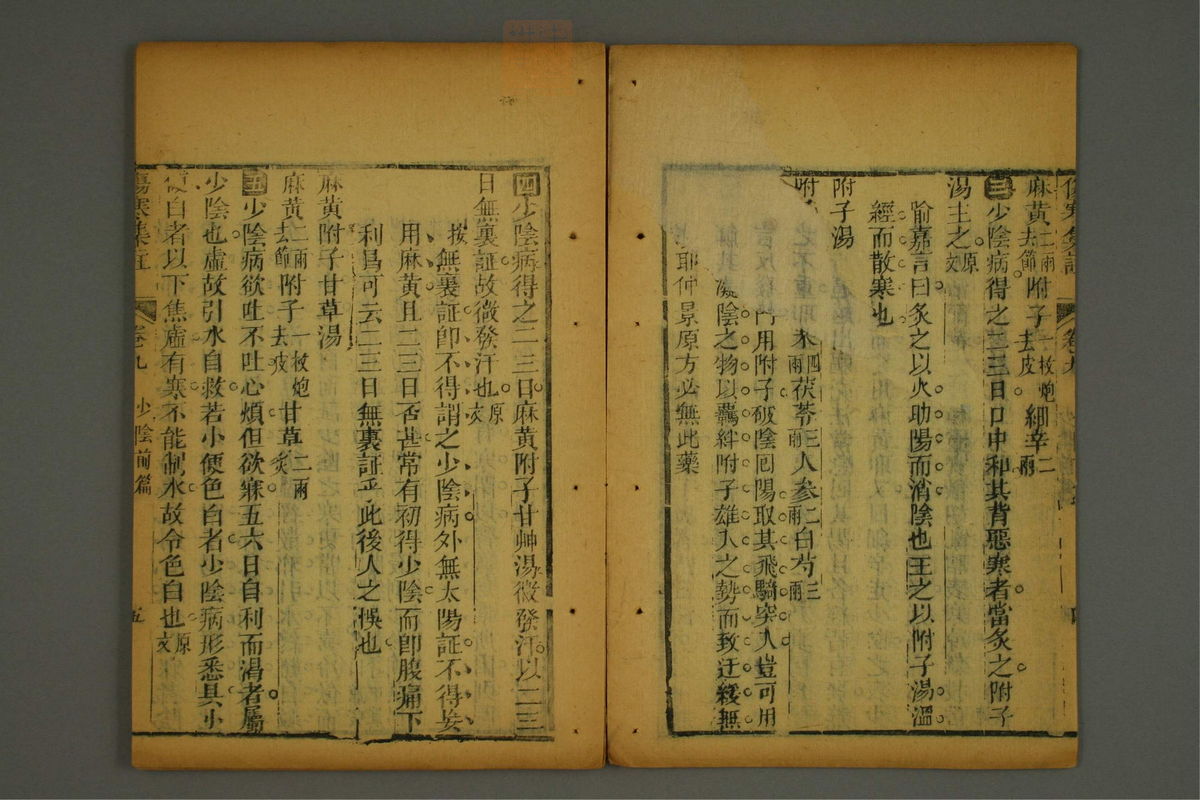 傷寒集註 卷九
麻黃二兩去節附子一枚炮去皮細辛二兩
三少陰病得之一二日口中和其背惡寒者當灸之附子
湯主之原文
喻嘉言曰灸之以火助陽而消陰也主之以附子湯溫
經而散寒也
附子湯
附 朮四兩茯苓三兩人參二兩白芍三兩
用附子破陰囘陽取其飛騎突入豈可用
陰之物以羈絆附子雄入之勢而致迂緩無
耶仲景原方必無此藥
四少陰病得之二三日麻黃附子甘艸湯微發汗以二三
日無裏証故微發汗也原文
按無裏証卽不得謂之少陰病外無太陽証不得妄
用麻黃且二三日否甚常有初得少陰而卽腹痛下
利爲可云二三日無裏証乎此後人之悞也
麻黃附子甘草湯
麻黃二兩去節附子一枚炮去皮甘草二兩炙
五少陰病欲吐不吐心煩但欲寐五六日自利而渴者屬
少陰也虛故引水自救若小便色白者少陰病形悉具小
便白者以下焦虛有寒不能制水故令色白也原文
傷寒集註 卷九 少陰前篇 五